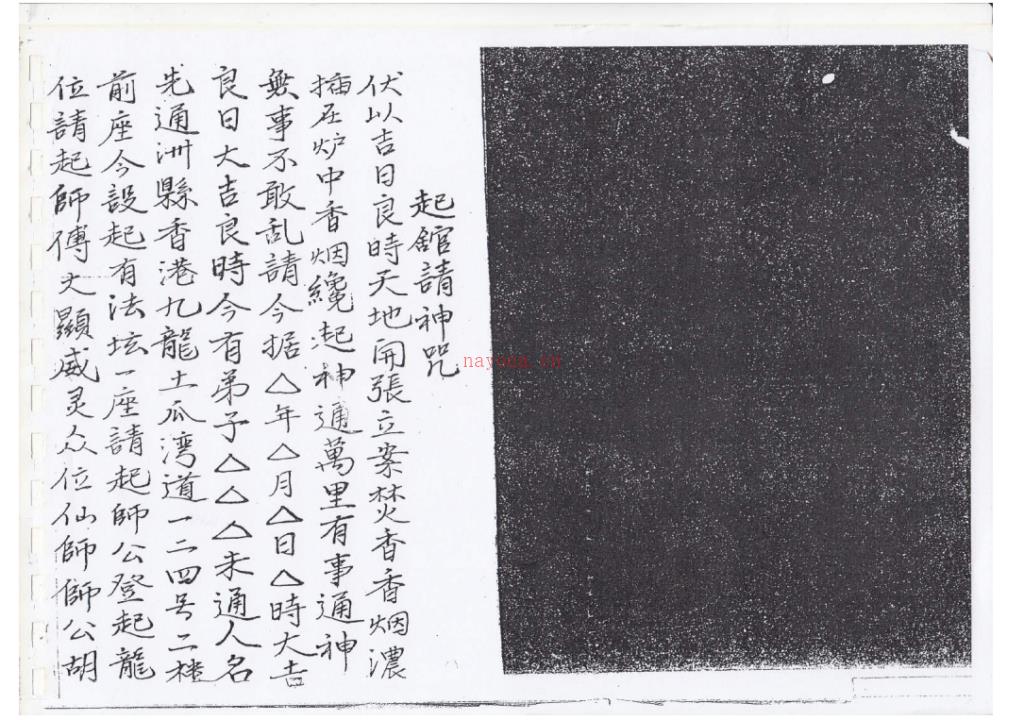 起舘請神咒
伏以吉日良時天地開張立案焚香香烟濃
插在炉中香烟纔起神通萬里有事通神
無事不敢乱請今据△年△月△日△時大吉
良日大吉良時今有弟子△△△未通人名
先通洲縣香港九龍土瓜湾道一二四号二楼
前座今設起有法坛一座請起師公登起龍
位請起師傅丈顯威灵众位仙師師公胡